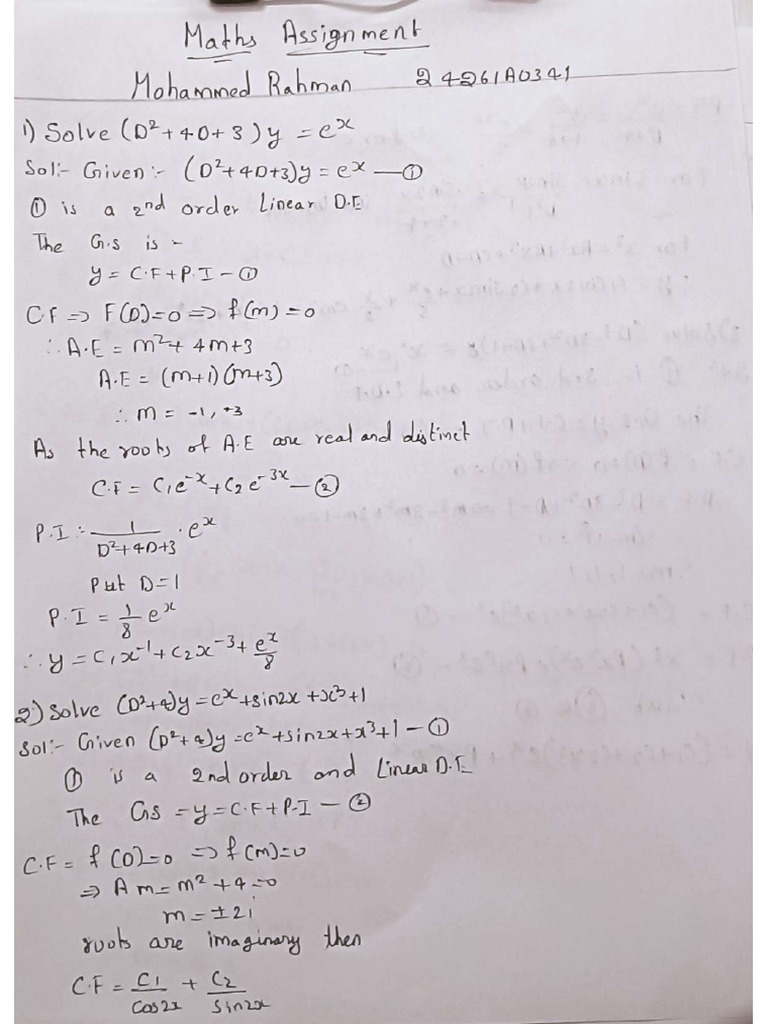 Maths Assignment
Mohammed Rahman 24261A0341
1) Solve (D²+4D+3)y = eˣ
Sol:- Given:- (D²+4D+3)y = eˣ —①
① is a 2nd order Linear D.E
The G.S is -
y = C.F+P.I —①
CF ⇒ F(D)=0 ⇒ f(m)=0
∴ A.E = m²+4m+3
A.E = (m+1)(m+3)
∴ m = -1, -3
As the roots of A.E are real and distinct
C.F = C₁e⁻ˣ+C₂e⁻³ˣ—②
P.I = 1/(D²+4D+3) · eˣ
Put D=1
P.I = 1/8 eˣ
∴ y = C₁x⁻¹+C₂x⁻³+eˣ/8
2) Solve (D²+4)y=eˣ+sin2x+x³+1
Sol:- Given (D²+4)y=eˣ+sin2x+x³+1 —①
① is a 2nd order and Linear D.E
The GS = y=C.F+P.I —②
C.F = f(D)=0 ⇒ f(m)=0
⇒ Am=m²+4=0
m=±2i
roots are imaginary then
C.F = C₁/cos2x + C₂/sin2x